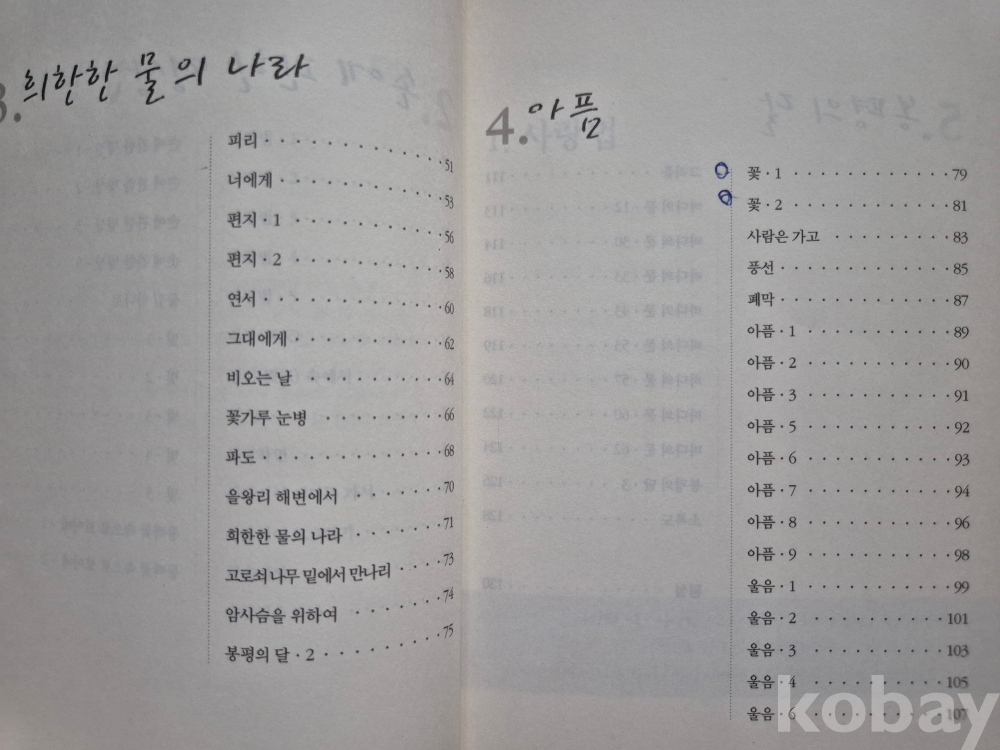 3. 희한한 물의 나라
피리 · 51
너에게 · 53
편지 · 1 · 56
편지 · 2 · 58
연서 · 60
그대에게 · 62
비오는 날 · 64
꽃가루 눈병 · 66
파도 · 68
을왕리 해변에서 · 70
희한한 물의 나라 · 71
고로쇠나무 밑에서 만나리 · 73
암사슴을 위하여 · 74
봉평의 달 · 2 · 75
4. 아픔
꽃 · 1 · 79
꽃 · 2 · 81
사람은 가고 · 83
풍선 · 85
폐막 · 87
아픔 · 1 · 89
아픔 · 2 · 90
아픔 · 3 · 91
아픔 · 5 · 92
아픔 · 6 · 93
아픔 · 7 · 94
아픔 · 8 · 96
아픔 · 9 · 98
울음 · 1 · 99
울음 · 2 · 101
울음 · 3 · 103
울음 · 4 · 105
울음 · 6 · 107
kobay